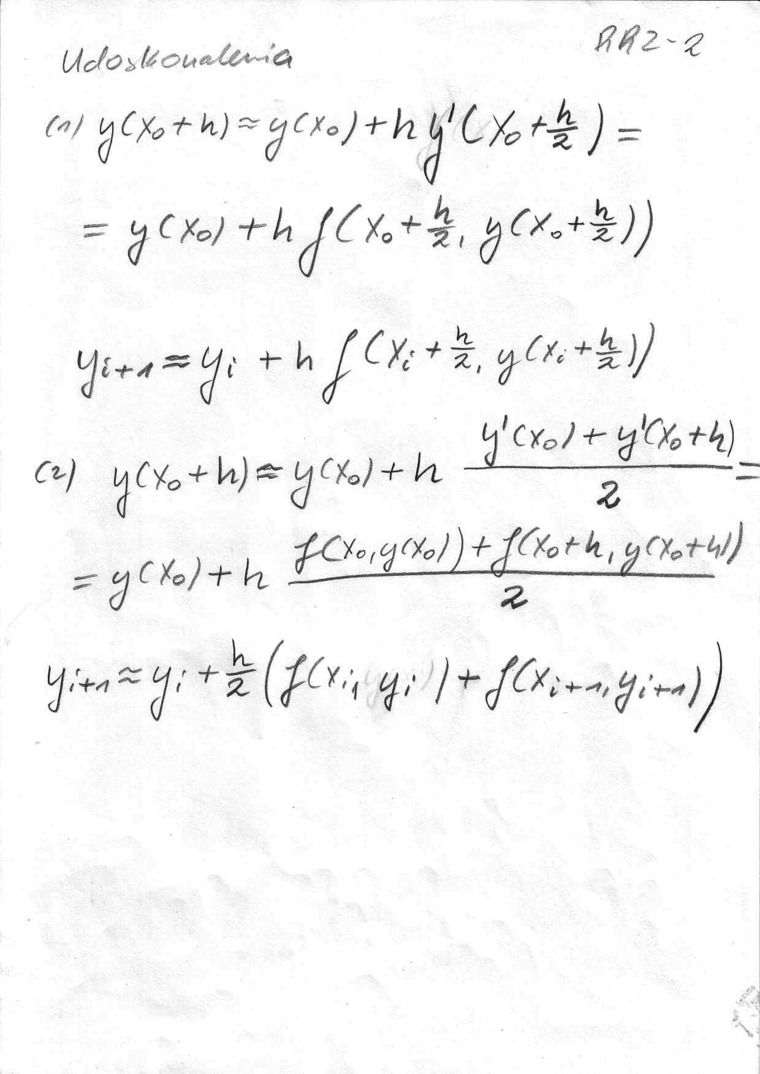 Udoskonalenia RRZ-2
(1) y(x₀+h) ≈ y(x₀) + h y'(x₀ + h/2) =
= y(x₀) + h f(x₀ + h/2, y(x₀ + h/2))
yᵢ₊₁ ≈ yᵢ + h f(xᵢ + h/2, y(xᵢ + h/2))
(2) y(x₀+h) ≈ y(x₀) + h (y'(x₀) + y'(x₀+h))/2 =
= y(x₀) + h (f(x₀, y(x₀)) + f(x₀+h, y(x₀+h)))/2
yᵢ₊₁ ≈ yᵢ + h/2 (f(xᵢ, yᵢ) + f(xᵢ₊₁, yᵢ₊₁))